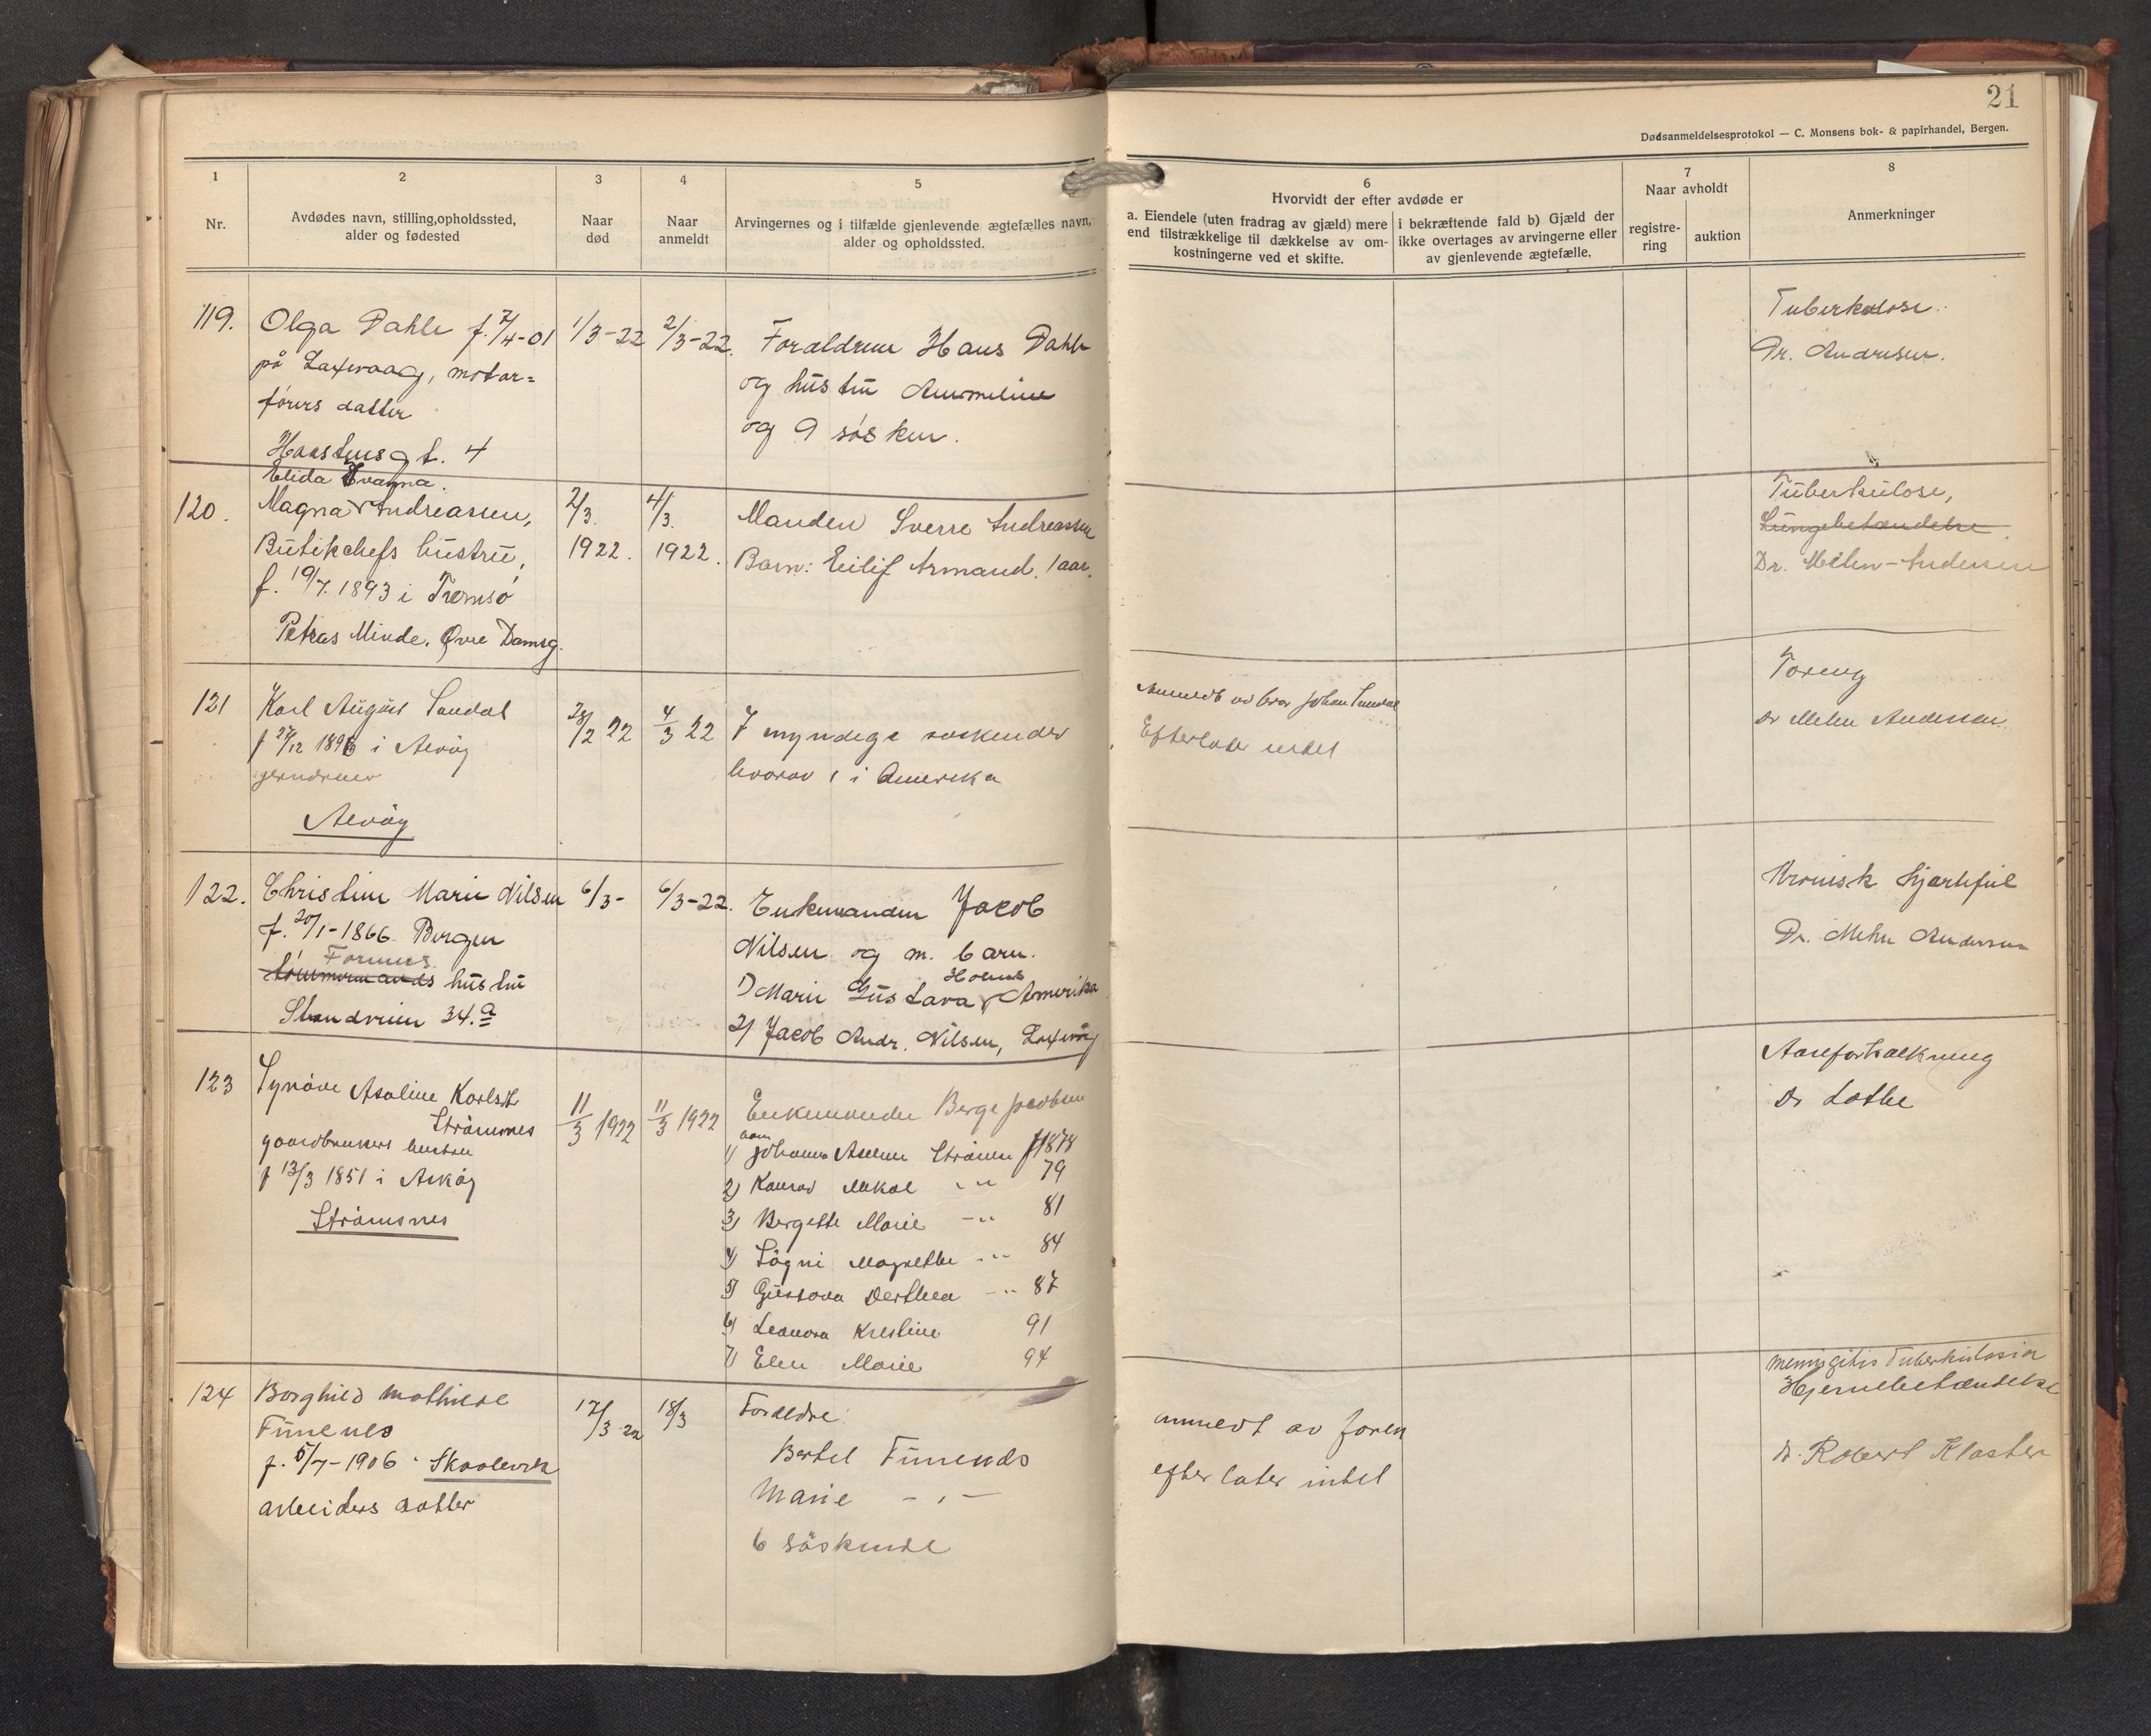 21
Dødsanmeldelsesprotokol — C. Monsens bok- & papirhandel, Bergen.
1
Nr.
2
Avdødes navn, stilling, opholdssted,
alder og fødested
3
Naar
død
4
Naar
anmeldt
5
Arvingernes og i tilfælde gjenlevende ægtefælles navn,
alder og opholdssted.
6
Hvorvidt der efter avdøde er
a. Eiendele (uten fradrag av gjæld) mere
end tilstrækkelige til dækkelse av om-
kostningerne ved et skifte.
i bekræftende fald b) Gjæld der
ikke overtages av arvingerne eller
av gjenlevende ægtefælle.
7
Naar avholdt
registre-
ring
auktion
8
Anmerkninger
119.
Olga Dahle f. 7/4-01
på Laxevaag, motor=
førers datter
gt. 4
1/3-22
2/3-22.
Forældrene Hans Dahle
og hustru
og 9 søsken.
Tuberkulose.
Dr. Andresen.
120.
Elida Evanna.
Magna Andreassen,
Butikchefs hustru,
f. 19/7. 1893 i Tromsø
Petras Minde. Øvre Damsg.
2/3.
1922.
4/3.
1922.
Manden Sverre Andreassen
Barn: Eilif Armand. 1 aar.
Tuberkulose,
Lungebetændelse.
Dr. Mehn-Andersen
121
Karl August Sandal
f 27/12 1896 i Alvøy
Alvøy
28/2 22
4/3 22
7 myndige søskender
hvorav 1 i Amerika
Anmeldt av bror Johan Sandal
Efterlater intet
Tæring
Dr Mehn Andersen
122.
Christine Marie Nilsen
f. 20/1-1866 Bergen
Formers
tømmermands hustru
Strandveien 34.a
6/3-
6/3-22.
Enkemanden Jacob
Nilsen og m. barn.
1) Marie Gustava Holms Amerika
2) Jacob Andr. Nilsen, Laxevåg
Kronisk hjertefeil
Dr. Mehn Andersen
123
Synøve Asaline Karlsdtr
Strømsnes
gaardbrukers hustru
f 13/3 1851 i Askøy
Strømsnes
11/3 1922
11/3 1922
Enkemanden Berge Jacobsen
barn
1) Johannes Strømsnes f 1878
2) Konrad Mikal -"- 79
3) Bergette Marie -"- 81
4) Søgni Magrethe -"- 84
5) Gustava Dorthea -"- 87
6) Leanora Kristine 91
7) Elen Marie 94
Aareforkalkning
Dr Lothe
124
Borghild Mathilde
Timenes
f. 5/7-1906 Skaalevik
arbeiders datter
17/3-22
18/3
Foreldre:
Bertel Timenes
Marie -"-
6 søskende
anmeldt av faren
efterlater intet
meningitis tuberkulosia
Hjernebetændelse
dr. Robert Kloster